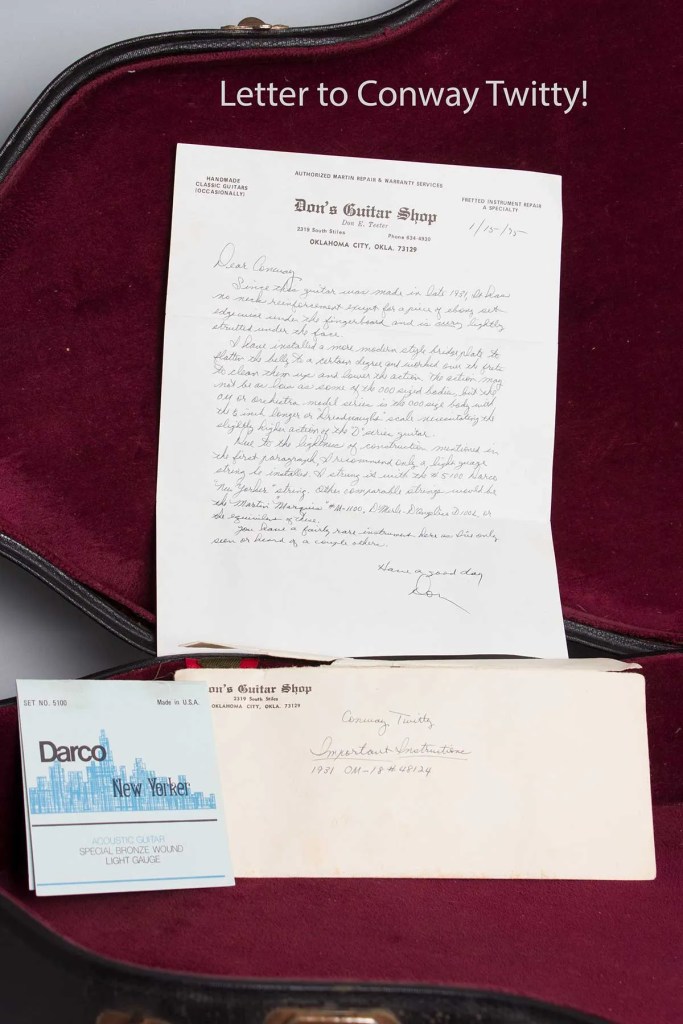 Letter to Conway Twitty!
AUTHORIZED MARTIN REPAIR & WARRANTY SERVICES
HANDMADE
CLASSIC GUITARS
(OCCASIONALLY)
FRETTED INSTRUMENT REPAIR
A SPECIALTY
Don's Guitar Shop
Don E. Teeter
2319 South Stiles Phone 634-4920
OKLAHOMA CITY, OKLA. 73129
1/15/75
Dear Conway
Since this guitar was made in late 1931, it has
no neck reinforcement except for a piece of ebony set
edgewise under the fingerboard and is very lightly
strutted under the face.
I have installed a more modern style bridge plate to
flatten the belly to a certain degree and worked over the frets
to clean them up and lower the action. The action may
not be as low as some of the 000 sized bodies, but the
OM or orchestra model series is the 000 size body with
the inch longer or "Dreadnaught" scale necessitating the
slightly higher action of the "D" series guitar.
Due to the lightness of construction mentioned in
the first paragraph, I recommend only a light guage
string be installed. I strung it with the #5100 Darco
"New Yorker" string. Other comparable strings would be
the Martin "Marquis" #M-1100, D'Merle, or
the equivalent of these.
You have a fairly rare instrument here as I've only
seen or heard of a couple others.
Have a good day
Don
Don's Guitar Shop
2319 South Stiles
OKLAHOMA CITY, OKLA. 73129
Conway Twitty
Important Instructions
1931 OM-18 # 48124
SET NO. 5100 Made in U.S.A.
Darco
New Yorker
ACOUSTIC GUITAR
SPECIAL BRONZE WOUND
LIGHT GAUGE